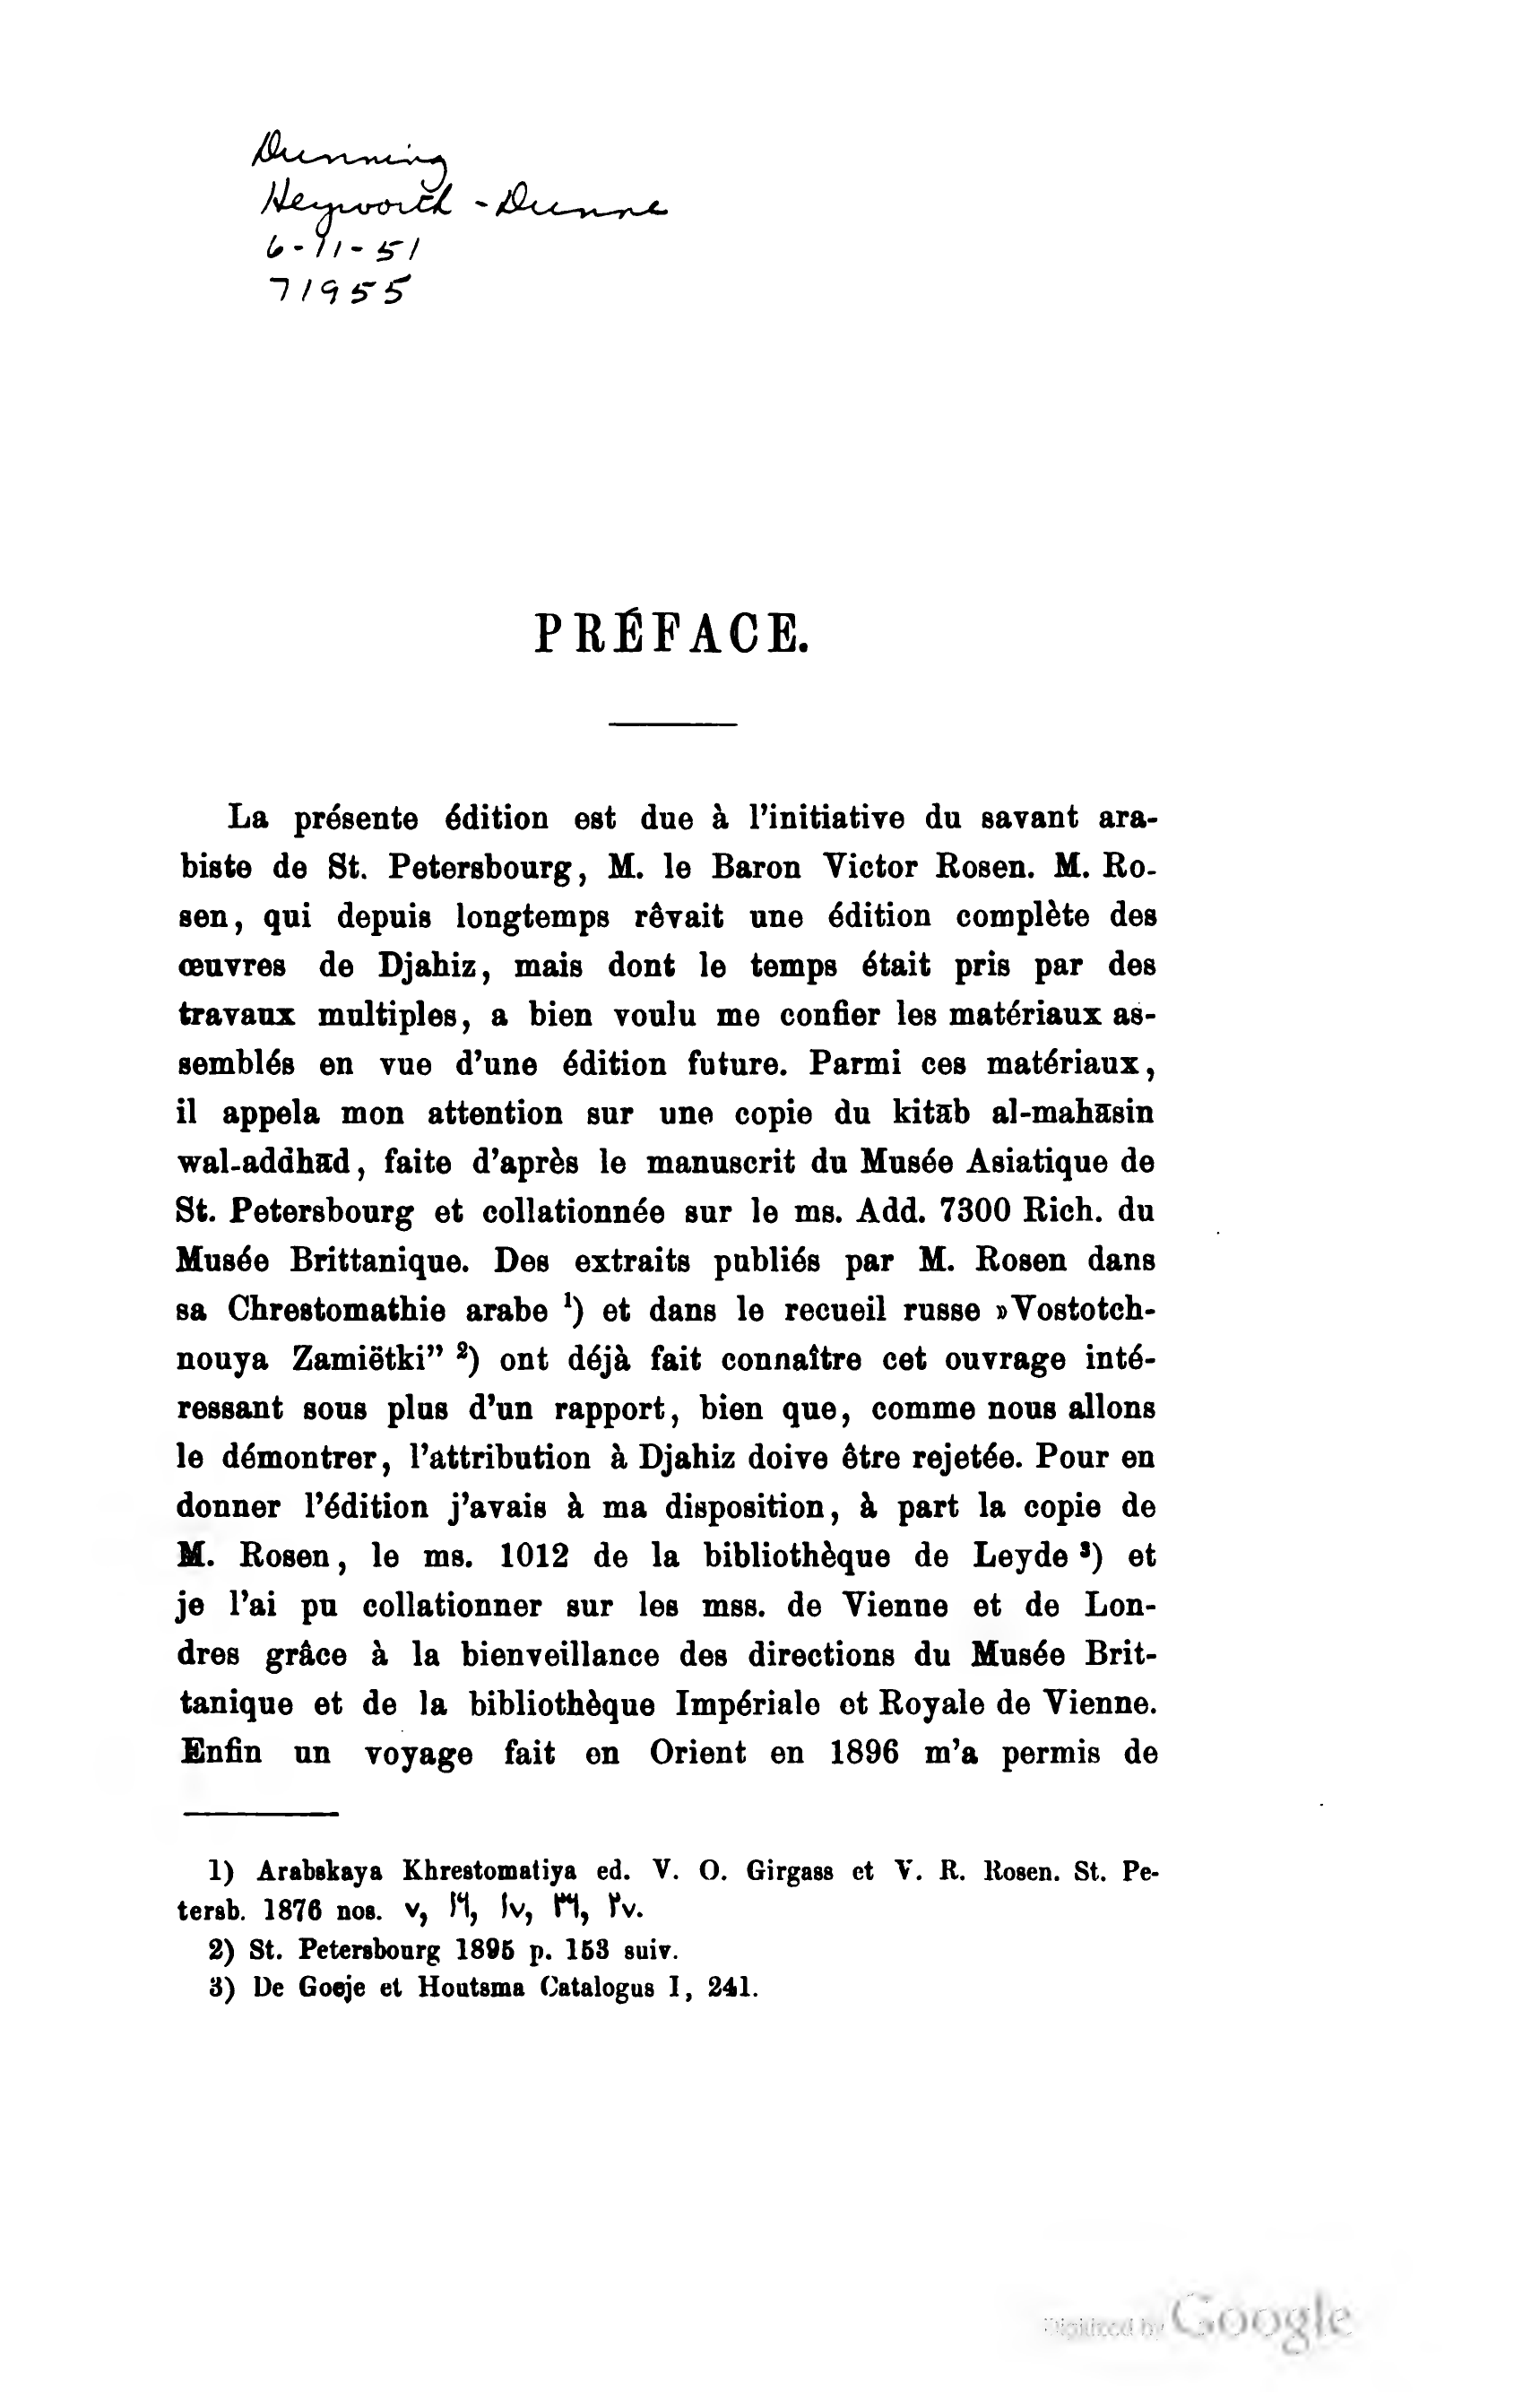 Dunning
Heyworth-Dunne
6-11-51
71955
PRÉFACE.
La présente édition est due à l'initiative du savant ara-
biste de St. Petersbourg, M. le Baron Victor Rosen. M. Ro-
sen, qui depuis longtemps rêvait une édition complète des
œuvres de Djahiz, mais dont le temps était pris par des
travaux multiples, a bien voulu me confier les matériaux as-
semblés en vue d'une édition future. Parmi ces matériaux,
il appela mon attention sur une copie du kitāb al-mahāsin
wal-addhād, faite d'après le manuscrit du Musée Asiatique de
St. Petersbourg et collationnée sur le ms. Add. 7300 Rich. du
Musée Brittanique. Des extraits publiés par M. Rosen dans
sa Chrestomathie arabe ¹) et dans le recueil russe »Vostotch-
nouya Zamiëtki" ²) ont déjà fait connaître cet ouvrage inté-
ressant sous plus d'un rapport, bien que, comme nous allons
le démontrer, l'attribution à Djahiz doive être rejetée. Pour en
donner l'édition j'avais à ma disposition, à part la copie de
M. Rosen, le ms. 1012 de la bibliothèque de Leyde ³) et
je l'ai pu collationner sur les mss. de Vienne et de Lon-
dres grâce à la bienveillance des directions du Musée Brit-
tanique et de la bibliothèque Impériale et Royale de Vienne.
Enfin un voyage fait en Orient en 1896 m'a permis de
1) Arabskaya Khrestomatiya ed. V. O. Girgass et V. R. Rosen. St. Pe-
tersb. 1876 nos. ٧, ١٦, ١٧, ٣٦, ٢٧.
2) St. Petersbourg 1895 p. 153 suiv.
3) De Goeje et Houtsma Catalogus I, 241.
Digitized by Google